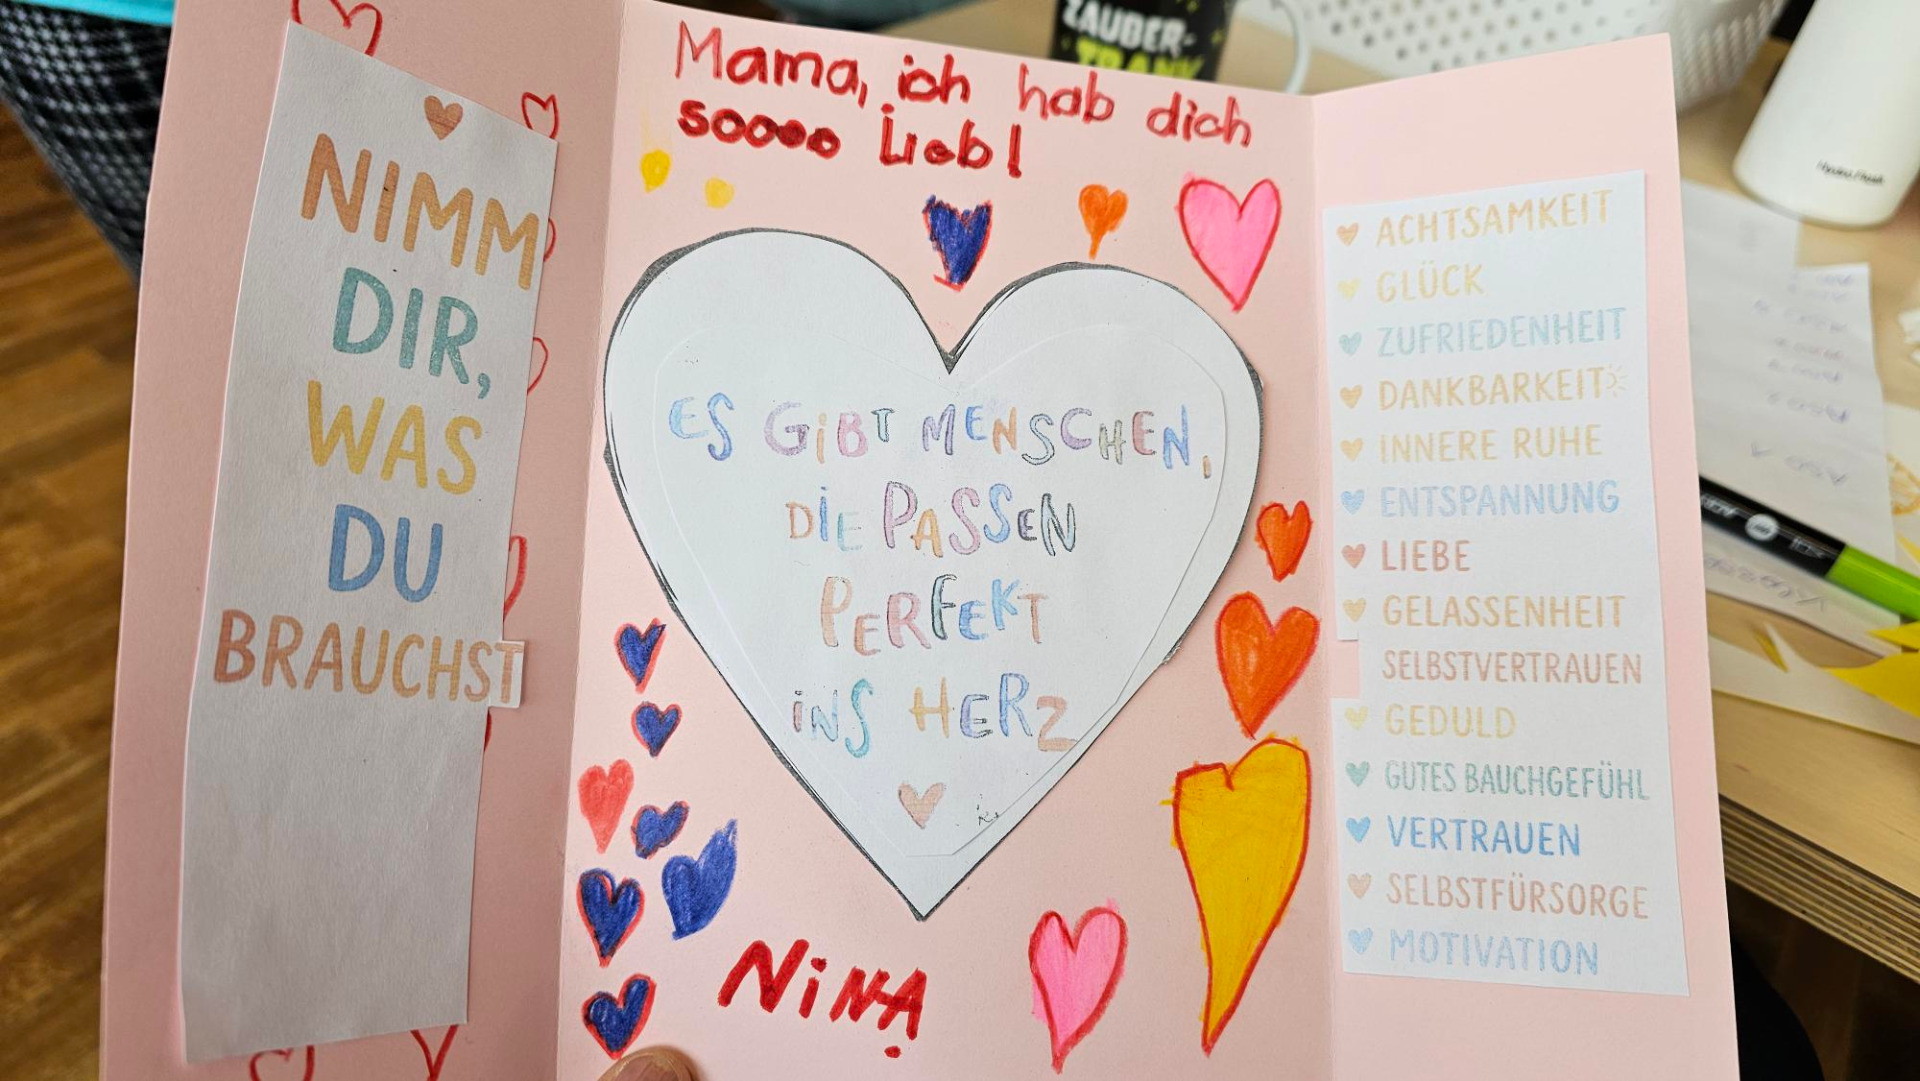 NIMM
DIR,
WAS
DU
BRAUCHST
Mama, ich hab dich
soooo Lieb!
ES GIBT MENSCHEN,
DIE PASSEN
PERFEKT
INS HERZ
NINA
ACHTSAMKEIT
GLÜCK
ZUFRIEDENHEIT
DANKBARKEIT
INNERE RUHE
ENTSPANNUNG
LIEBE
GELASSENHEIT
SELBSTVERTRAUEN
GEDULD
GUTES BAUCHGEFÜHL
VERTRAUEN
SELBSTFÜRSORGE
MOTIVATION
ZAUBER-
TRANK